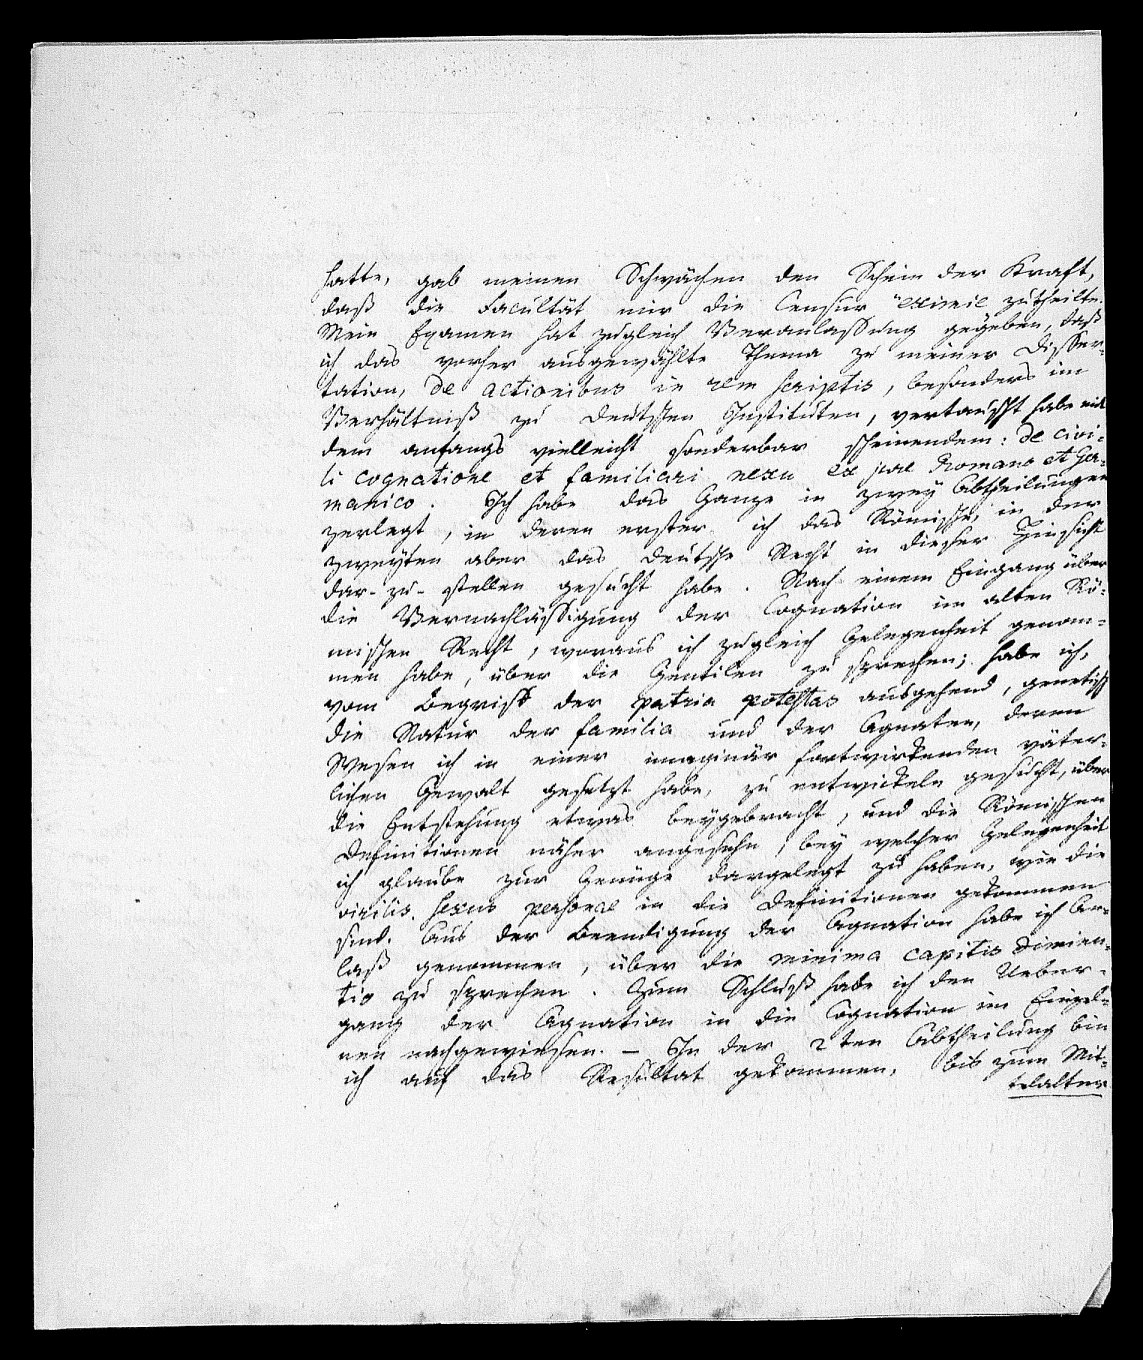 hatte, gab meinen Schwächen den Schein der Kraft,
daß die Facultät mir die Censur "eximie zutheilte.
Mein Examen hat zugleich Veranlassung gegeben, daß
ich das vorher ausgewählte Thema zu meiner Disser-
tation, de actionibus in rem scriptis, besonders im
Verhältniß zu deutschen Instituten, vertauscht habe mit
dem anfangs vielleicht sonderbar scheinendem: de civi-
li cognatione et familiari nexu ex jure Romano et Ger-
manico. Ich habe das Ganze in zwey Abtheilungen
zerlegt, in deren erster ich das Römische, in der
zweyten aber das deutsche Recht in dieser Hinsicht
dar-zu-stellen gesucht habe. Nach einem Eingang über
die Vernachlässigung der Cognation im alten Rö-
mischen Recht, woraus ich zugleich Gelegenheit genom-
men habe, über die Gentilen zu sprechen; habe ich,
vom Begriff der patria potestas ausgehend, genetisch
die Natur der familia und der Agnaten, deren
Wesen ich in einer imaginär fortwirkenden väter-
lichen Gewalt gesetzt habe, zu entwickeln gesucht, über
die Entstehung etwas beygebracht, und die Römischen
Definitionen näher angesehn, bey welcher Gelegenheit
ich glaube zur Genüge dargelegt zu haben, wie die
virilis sexus personae in die Definitionen gekommen
sind. Aus der Beendigung der Agnation habe ich An-
laß genommen, über die minima capitis diminu-
tio zu sprechen. Zum Schluß habe ich den Ueber-
gang der Agnation in die Cognation im Einzel-
nen nachgewiesen. – In der 2ten Abtheilung bin
ich auf das Resultat gekommen, bis zum Mit-
telalter